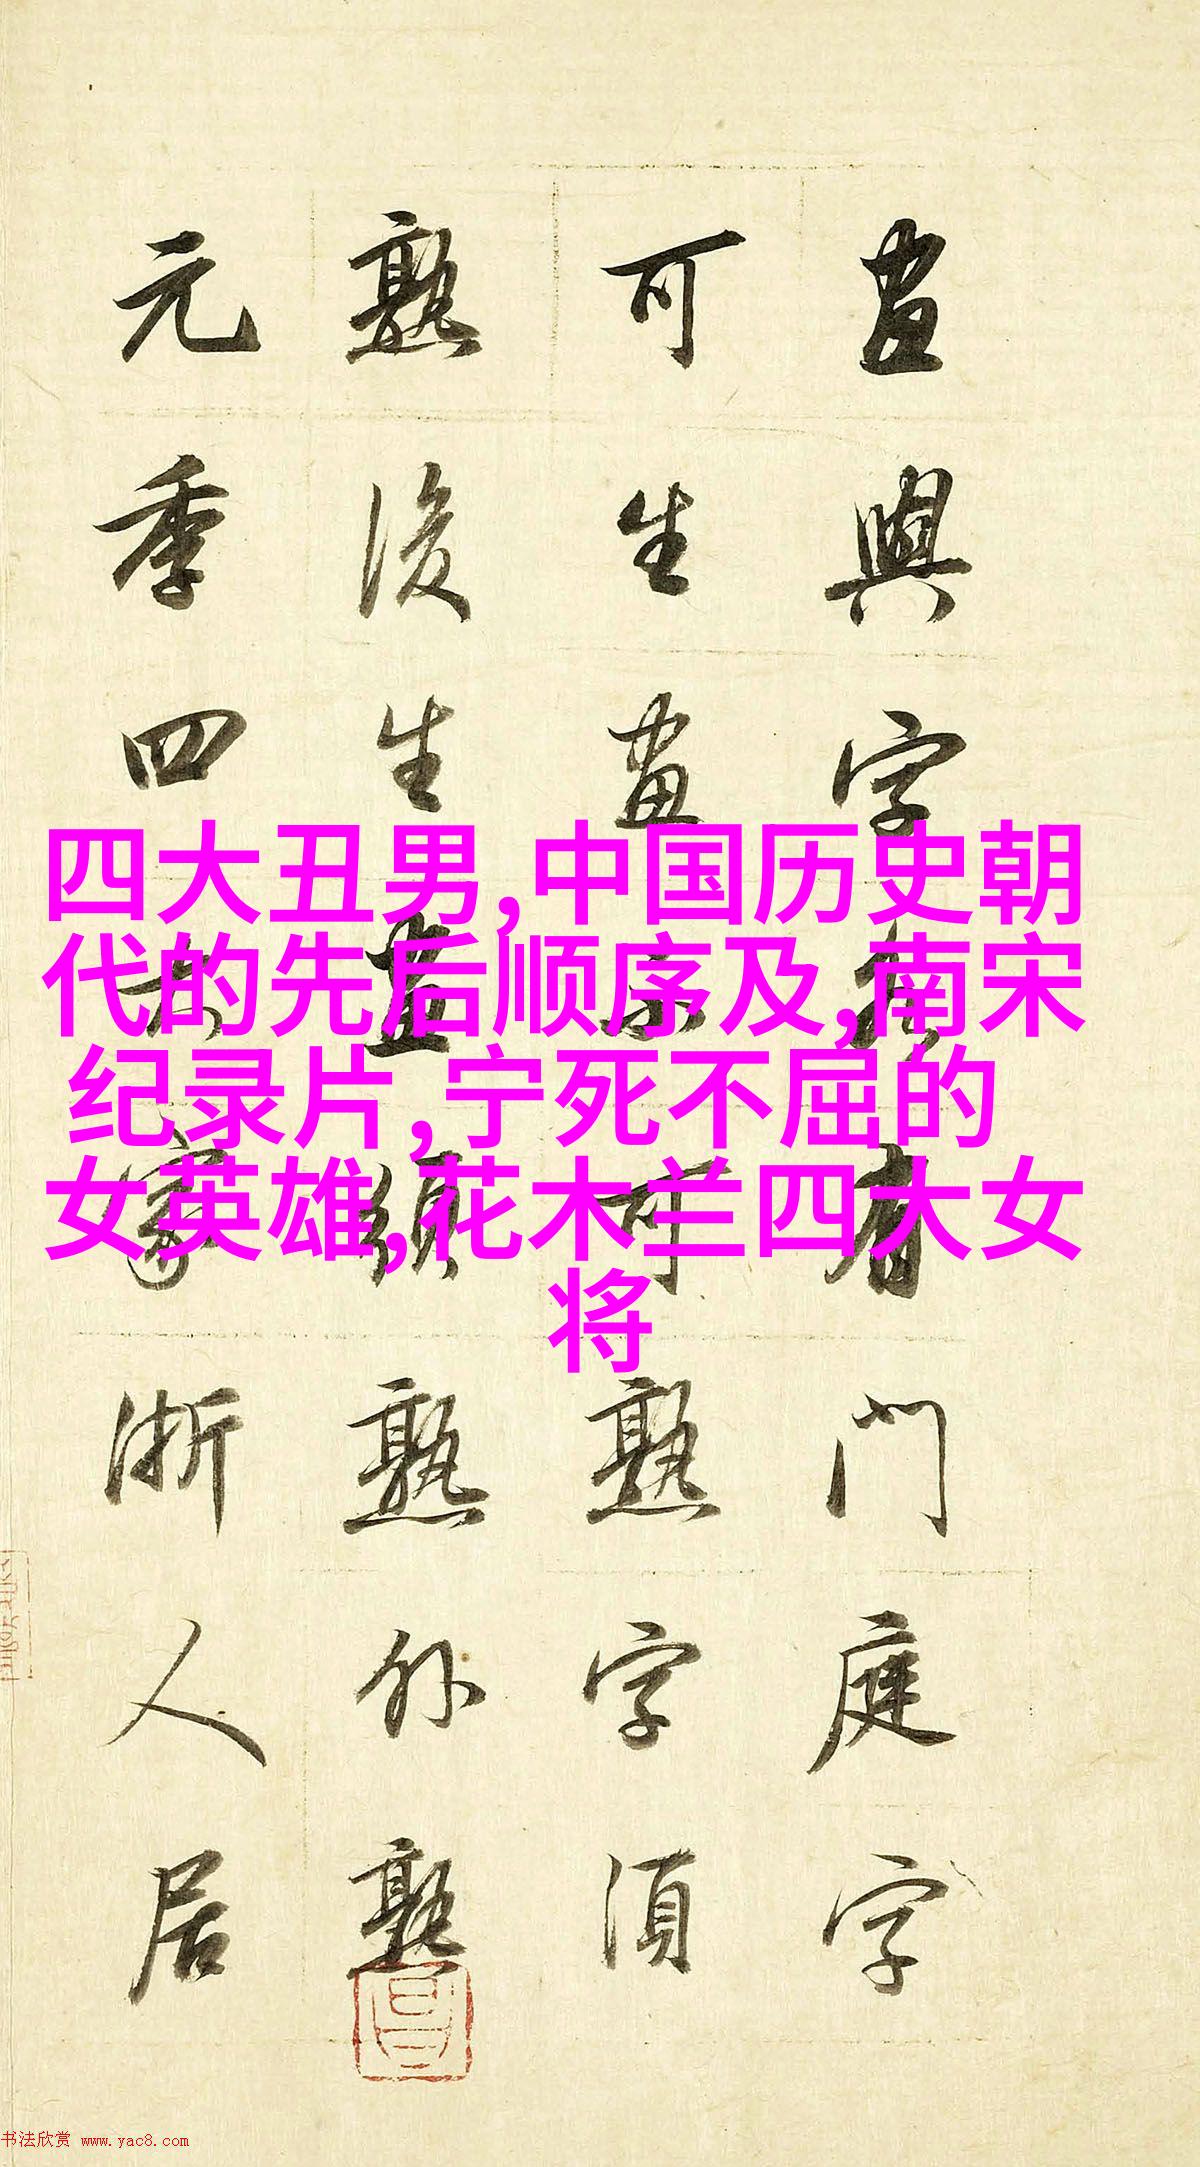 畫與字各有門庭字
可生畫不可熟字須
熟後生畫須熟外熟
元季四大家浙人居
四大丑男,中国历史朝
代的先后顺序及,南宋
纪录片,宁死不屈的
女英雄,花木兰四大女
将
书法欣赏 www.yac8.com